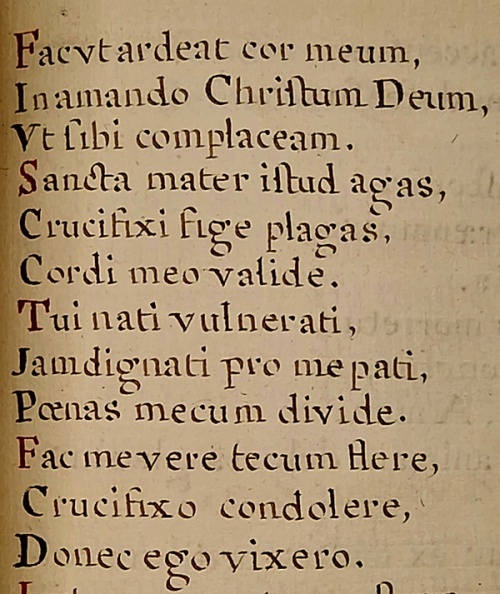 Facvt ardeat cor meum,
In amando Chriſtum Deum,
Vt ſibi complaceam.
Sancta mater iſtud agas,
Crucifixi fige plagas,
Cordi meo valide.
Tui nati vulnerati,
Jamdignati pro me pati,
Pœnas mecum divide.
Fac me vere tecum flere,
Crucifixo condolere,
Donec ego vixero.